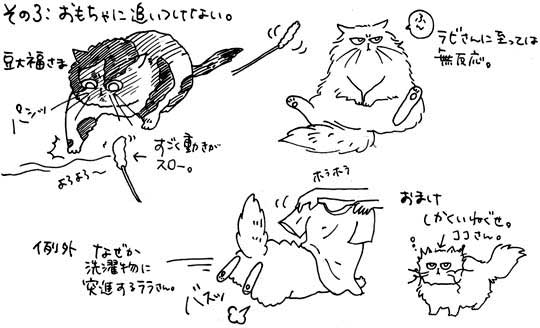 その3:おもちゃに追いつけない。
豆大福さま
パシッ
すごく動きが
スロー。
よろよろ〜
ふ〜
ラビさんに至っては
無反応。
ホラホラ
例外 なぜか
洗濯物に
突進するララさん。
バズッ
おまけ
しかくいねぐせ。
ココさん。